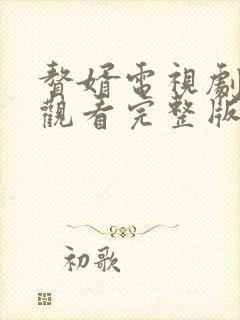 贅婿電視劇
觀看完整版
初歌